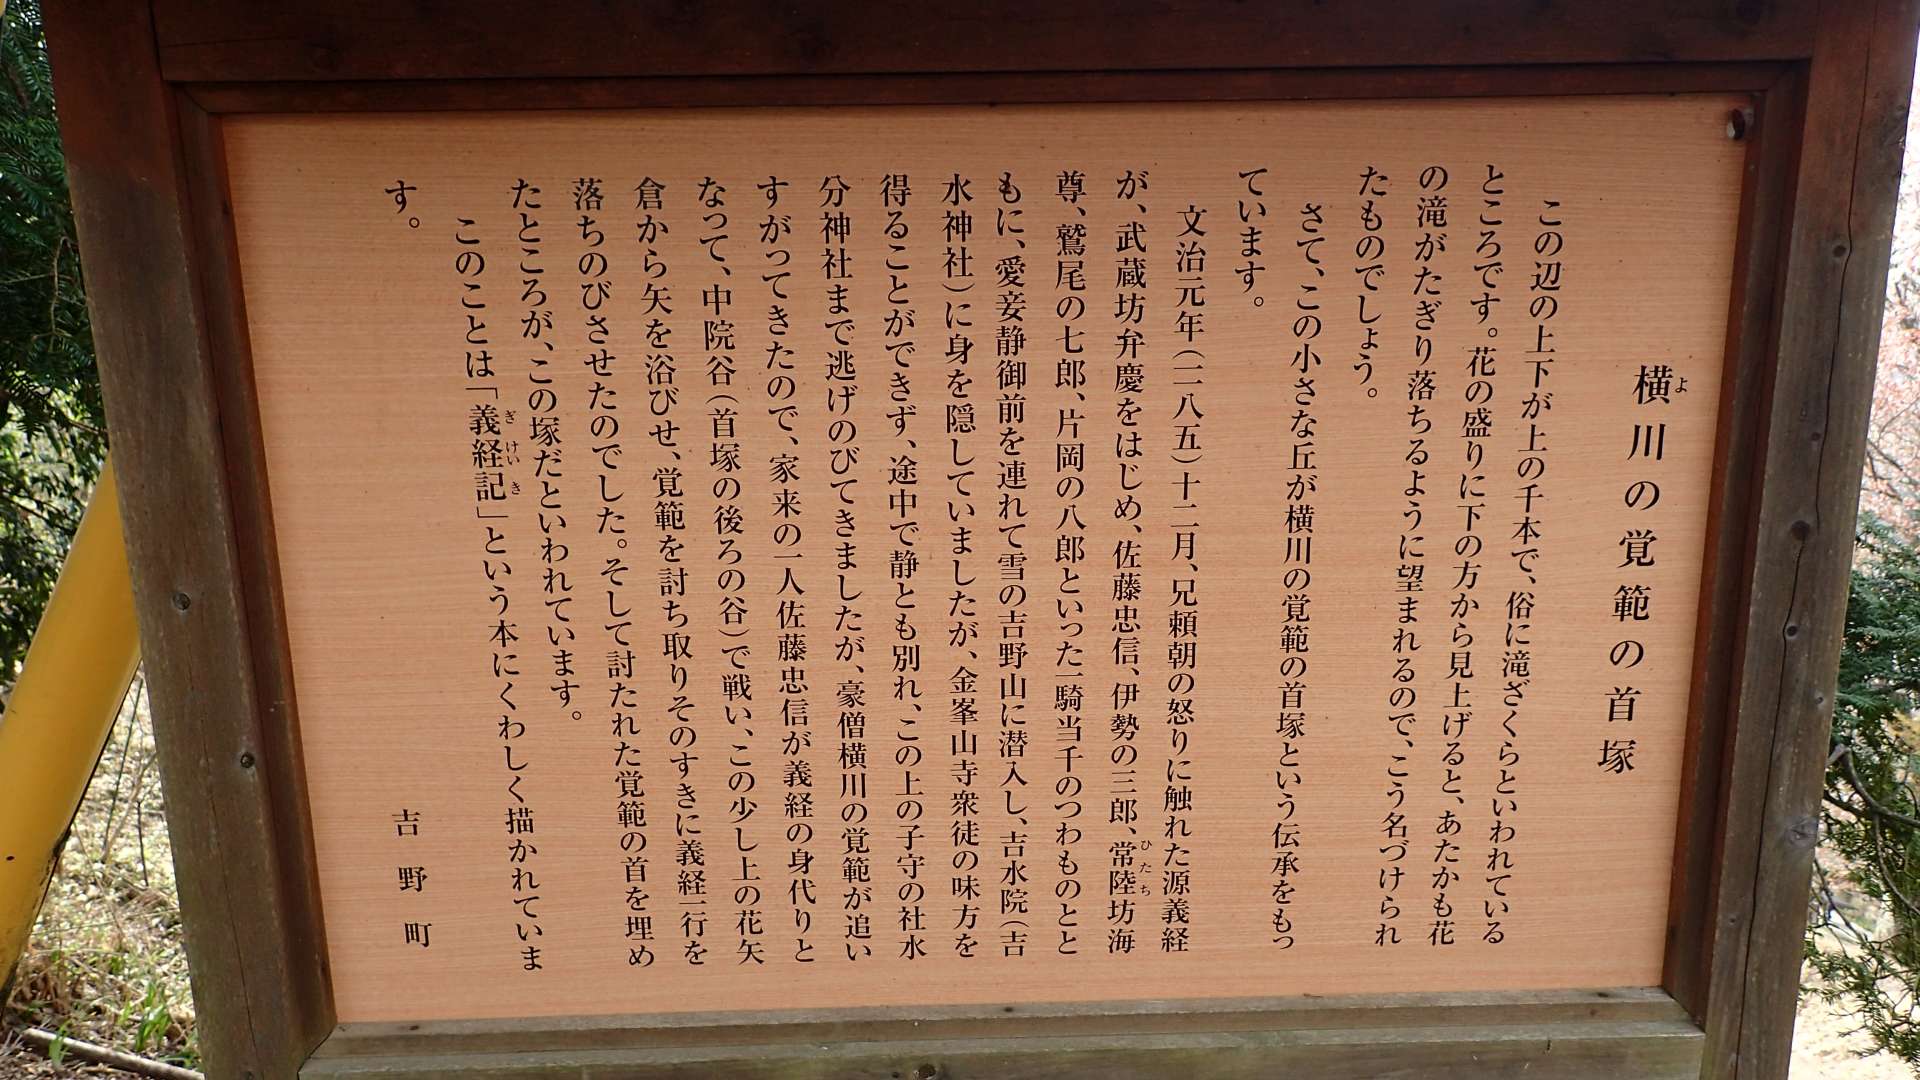 横川の覚範の首塚
よ
この辺の上下が上の千本で、俗に滝ざくらといわれている
ところです。花の盛りに下の方から見上げると、あたかも花
の滝がたぎり落ちるように望まれるので、こう名づけられ
たものでしょう。
さて、この小さな丘が横川の覚範の首塚という伝承をもっ
ています。
文治元年（一一八五）十二月、兄頼朝の怒りに触れた源義経
が、武蔵坊弁慶をはじめ、佐藤忠信、伊勢の三郎、常陸坊海
ひたち
尊、鷲尾の七郎、片岡の八郎といった一騎当千のつわものとと
もに、愛妾静御前を連れて雪の吉野山に潜入し、吉水院（吉
水神社）に身を隠していましたが、金峯山寺衆徒の味方を
得ることができず、途中で静とも別れ、この上の子守の社水
分神社まで逃げのびてきましたが、豪僧横川の覚範が追い
すがってきたので、家来の一人佐藤忠信が義経の身代りと
なって、中院谷（首塚の後ろの谷）で戦い、この少し上の花矢
倉から矢を浴びせ、覚範を討ち取りそのすきに義経一行を
落ちのびさせたのでした。そして討たれた覚範の首を埋め
たところが、この塚だといわれています。
このことは「義経記」という本にくわしく描かれていま
ぎけいき
す。
吉野町